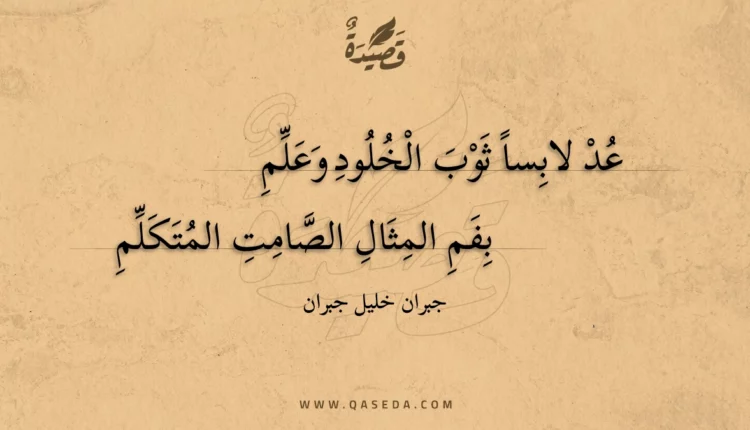 قَصِيْدَةٌ
عُدْ لابِساً ثَوْبَ الْخُلُودِ وَعَلِّمِ
بِفَمِ المِثَالِ الصَّامِتِ المُتَكَلِّمِ
جبران خليل جبران
WWW.QASEDA.COM